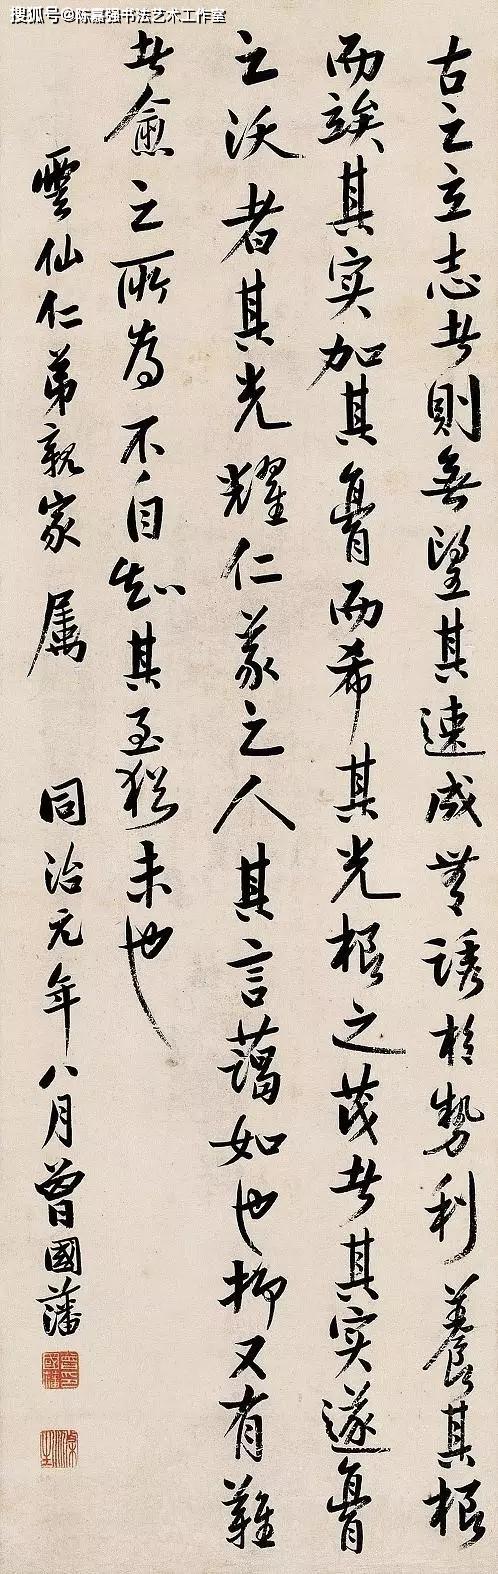 搜狐号@陈嘉强书法艺术工作室
古之立志者則無望其速成無誘於勢利養其根
而竢其实加其膏而希其光根之茂者其实遂膏
之沃者其光耀仁義之人其言藹如也抑又有難
者愈之所為不自知其至猶未也
雲仙仁弟親家属 同治元年八月曾國藩